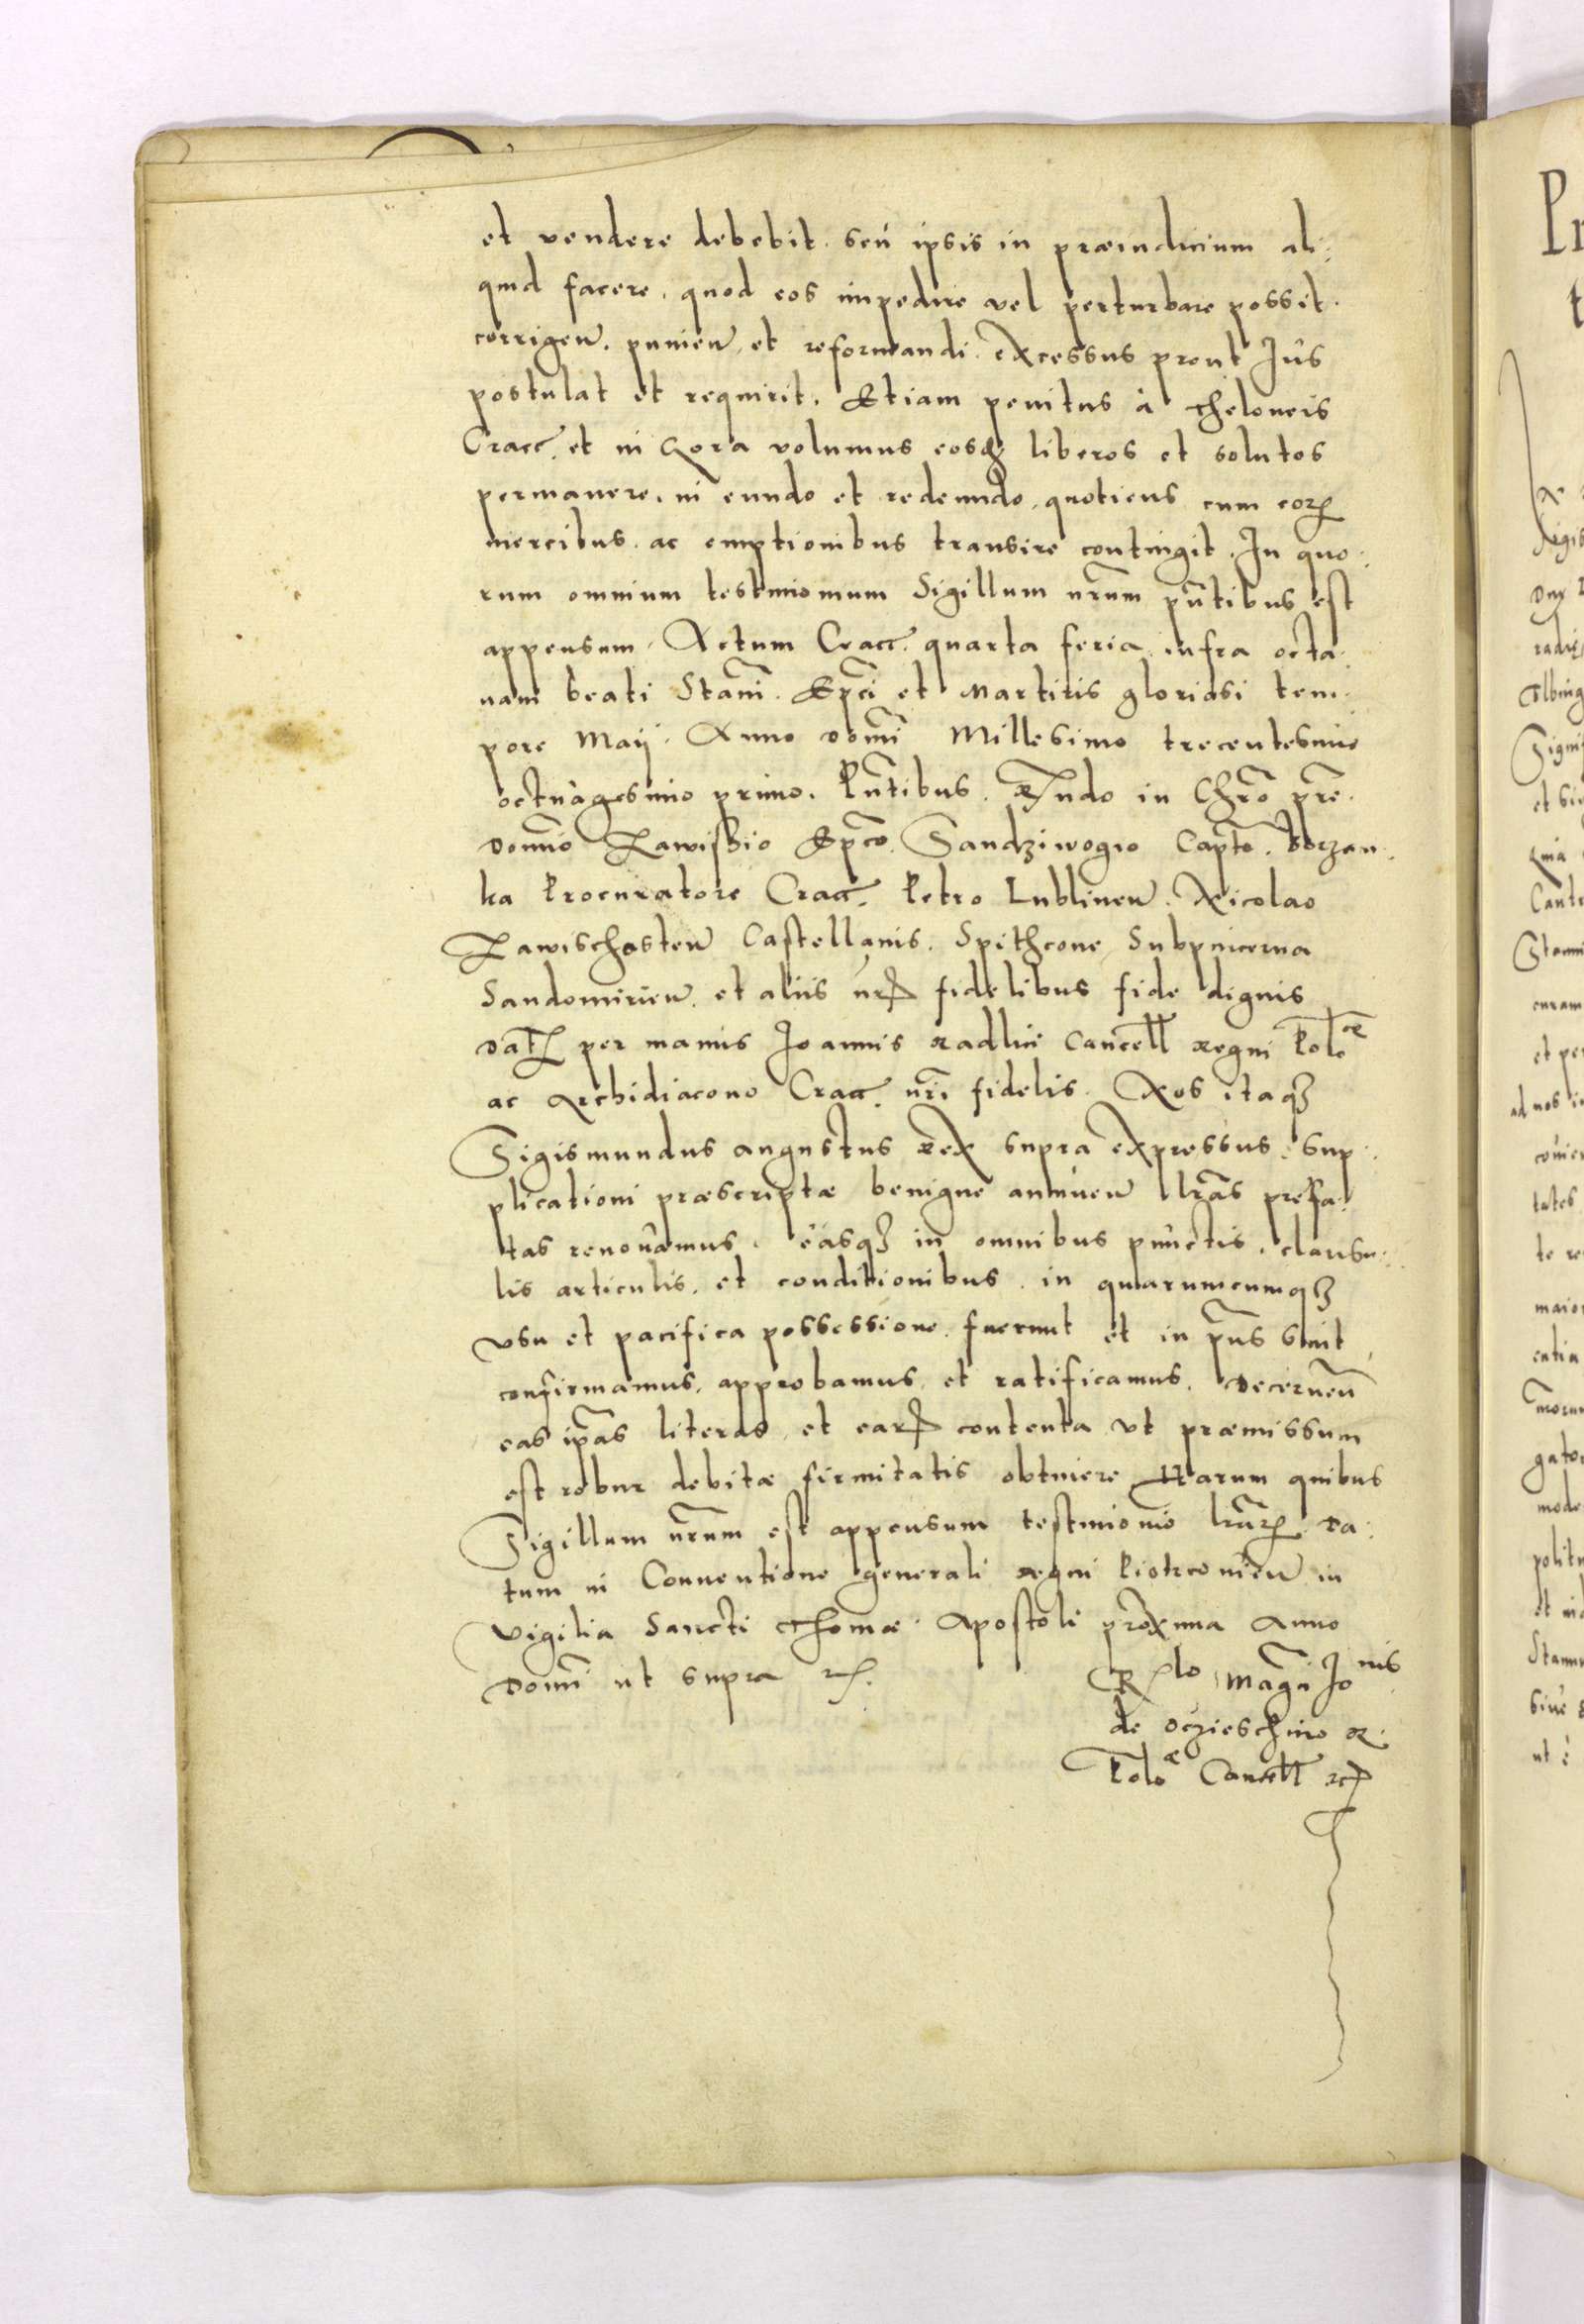 et vendere debebit. seu ipsis in præiudicium ali:
quid facere. quod eos impedire vel perturbare possit.
corrigen̄. punien̄. et reformandi. excessus prout Jus
postulat et requirit. Etiam penitus à Theloneis
Cracc. et in Gora volumus eosdē liberos et solutos
permanere. in eundo et redeundo. quotiens cum eoꝝ
mercibus. ac emptionibus transire contingit. In quo:
rum omnium testimonium Sigillum nr̄um pn̄tibus est
appensum. Actum Cracc. quarta feria. infra octa:
uam beati Stani. Ep̄ci et Martiris gloriosi tem:
pore Maij. Anno Domi Millesimo trecentesimo
octuagesimo primo. Pn̄tibus. Rn̄do in Chr̄o pr̄e.
Domino Zawischio Ep̄co. Sandziwogio Capto. Borzan:
ka Procuratore Cracc. Petro Lublinen̄. Nicolao
Zawischosten̄ Castellanis. Spithcone Subpincerna
Sandomirien̄. et aliis nrīs fidelibus fide dignis
Datꝝ per manus Joannis Radlici Cancell Regni Poloᵉ
ac Archidiacono Cracc. nr̄i fidelis. Nos itaqꝫ
Sigismundus augustus Rex supra expressus. sup:
plicationi præscriptæ benigne annuen̄ lr̄as prefa:
tas renouamus. easqꝫ in omnibus punctis. clausu:
lis articulis. et conditionibus. in quarumcumqꝫ
vsu et pacifica possessione. fuerunt et in pn̄s sunt
confirmamus. approbamus. et ratificamus. Decernen̄
eas ip̄as literas et earꝝ contenta vt præmissum
est robur debitæ firmitatis obtinere. Harum quibus
Sigillum nr̄um est appensum testimonio lr̄arꝝ. Da:
tum in Conuentione generali Regni Piotrcouien̄ in
vigilia Sancti Thomæ Apostoli proxima Anno
Domi ut supra ꝛc.
Rlo Magci Joⁿⁱˢ
de Oczieschino R.
Poloᵉ Cancell ꝛc